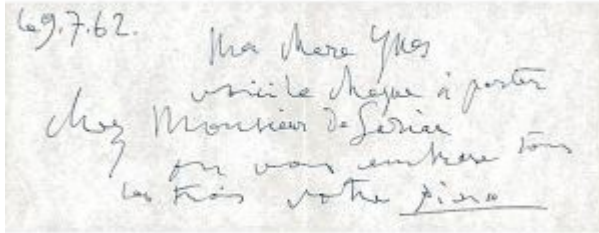 le 9.7.62.
Ma chère Yves
voici le chèque à porter
chez Monsieur de
on vous embrasse tous
les trois votre Pierre